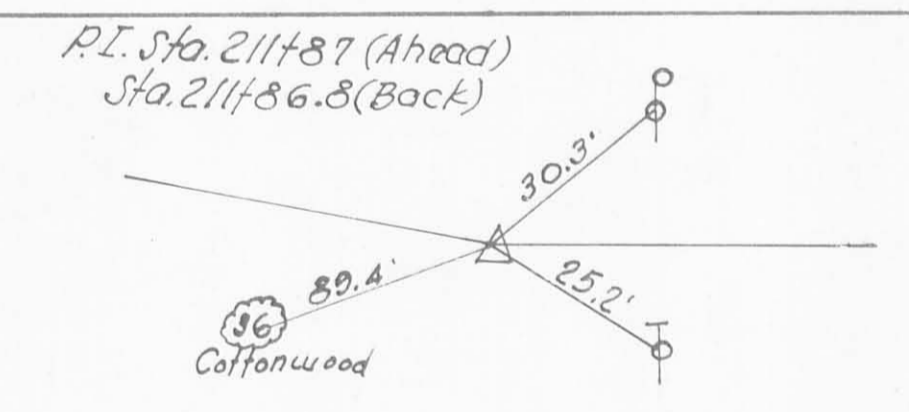 P.I. Sta. 211+87 (Ahead)
Sta. 211+86.8 (Back)
30.3'
89.4'
25.2'
36
Cottonwood